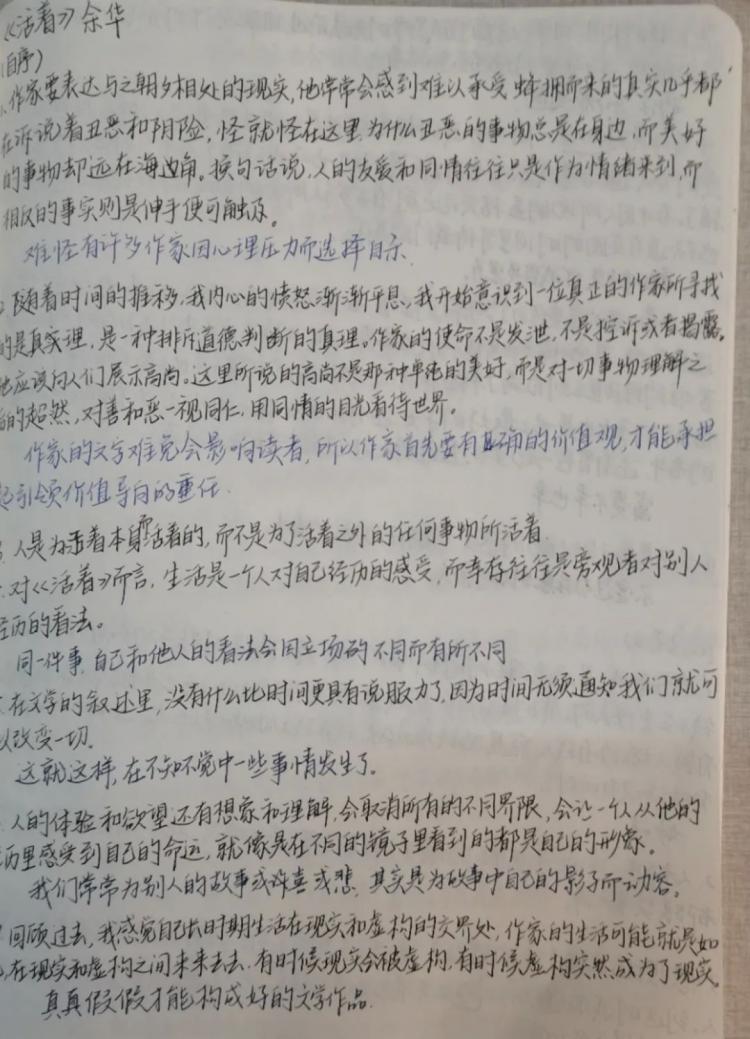 《活着》余华
(自序)
1.作家要表达与之朝夕相处的现实,他常常会感到难以承受,蜂拥而来的真实几乎都
在诉说着丑恶和阴险,怪就怪在这里,为什么丑恶的事物总是在身边,而美好
的事物却远在海边角。换句话说,人的友爱和同情往往只是作为情绪来到,而
相反的事实则是伸手便可触及。
难怪有许多作家因心理压力而选择自杀.
随着时间的推移,我内心的愤怒渐渐平息,我开始意识到一位真正的作家所寻找
的是真实理,是一种排斥道德判断的真理。作家的使命不是发泄,不是控诉或者揭露,
他应该向人们展示高尚。这里所说的高尚不是那种单纯的美好,而是对一切事物理解之
后的超然,对善和恶一视同仁,用同情的目光看待世界。
作家的文字难免会影响读者,所以作家首先要有正确的价值观,才能承担
起引领价值导向的重任.
人是为活着本身活着的,而不是为了活着之外的任何事物所活着.
对《活着》而言,生活是一个人对自己经历的感受,而幸存往往是旁观者对别人
经历的看法。
同一件事,自己和他人的看法会因立场的不同而有所不同
在文学的叙述里,没有什么比时间更具有说服力了,因为时间无须通知我们就可
以改变一切.
这就这样,在不知不觉中一些事情发生了.
人的体验和欲望还有想象和理解,会取消所有的不同界限,会让一个人从他的
历里感受到自己的命运,就像是在不同的镜子里看到的都是自己的形象.
我们常常为别人的故事或喜或悲,其实是为故事中自己的影子而动容。
回顾过去,我感觉自己长时期生活在现实和虚构的交界处,作家的生活可能就是如
在现实和虚构之间来来去去,有时候现实会被虚构,有时候虚构突然成为了现实。
真真假假才能构成好的文学作品.